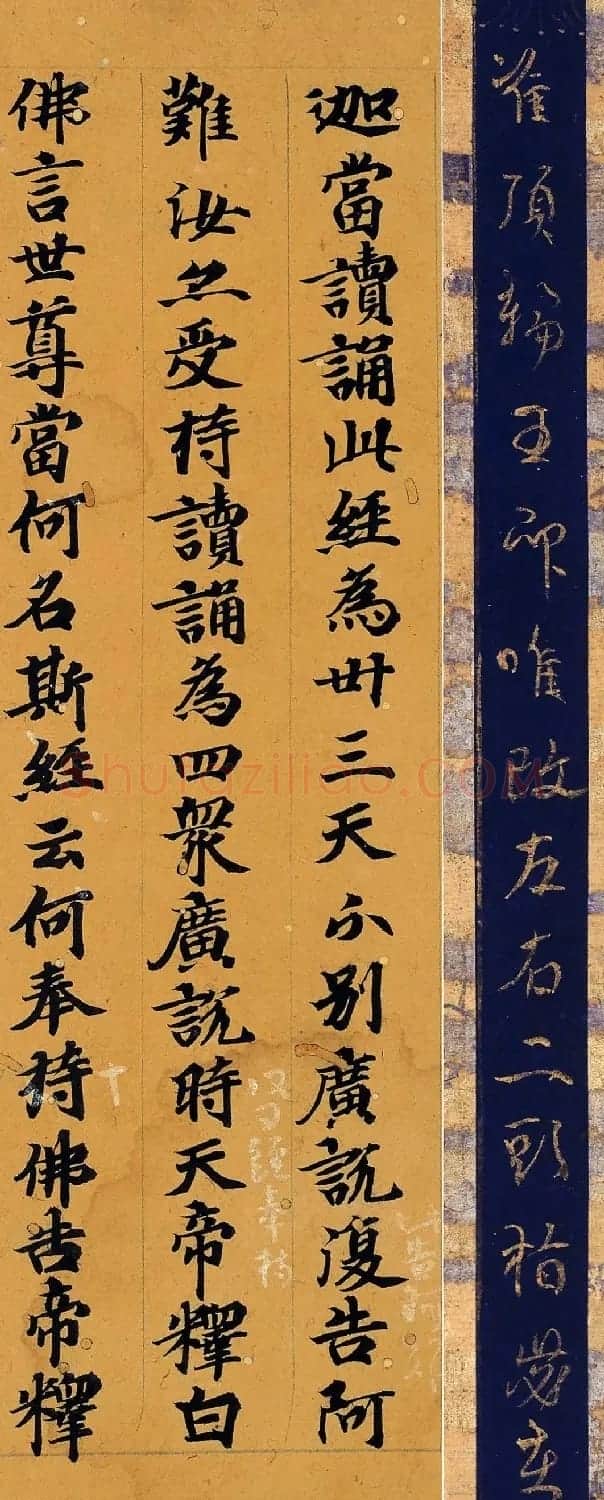 准頂輪王印唯改左右二頭指
迦當讀誦此經為卅三天分別廣說復告阿
難汝亦受持讀誦為四眾廣說時天帝釋白
佛言世尊當何名斯經云何奉持佛告帝釋
Shufaziliao.COM